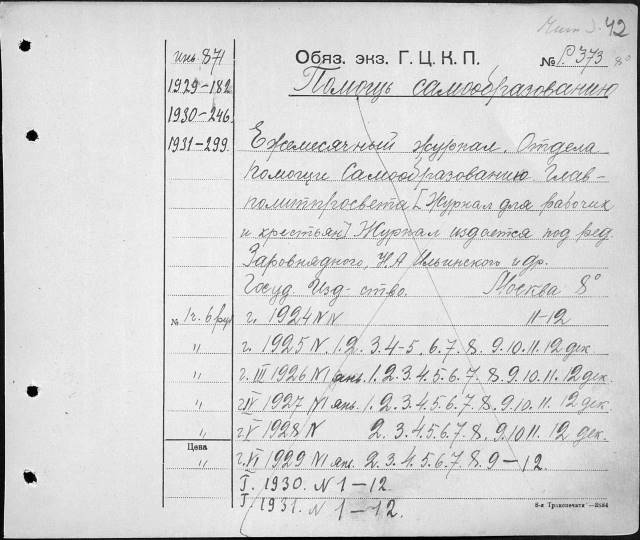 42
инв 871
Обяз. экз. Г. Ц. К. П.
№ Р373 8°
1929-182
Помощь самообразованию
1930-246
1931-299
Ежемесячный журнал. Отдела
помощи самообразованию Глав-
политпросвета [Журнал для рабочих
и крестьян] Журнал издается под ред.
Заровнядного, Н.А Ильинского и др.
Госуд. Изд-ство. Москва 8°
№ 1 г. 6 руб г. 1924 N N 11-12
" г. 1925 N 1.2. 3.4-5. 6.7. 8. 9.10.11. 12 дек.
" г. III 1926 N янв. 1.2.3.4.5.6.7. 8. 9.10.11. 12 дек.
" г. IV 1927 N янв. 1.2.3.4.5.6.7. 8. 9.10.11. 12 дек.
" г. V 1928 N 2. 3.4.5.6.7. 8. 9.10 11. 12 дек.
Цена
" г. VI 1929 N янв. 2.3.4.5.6.7.8.9-12.
Г. 1930. N 1-12.
Г. 1931. N 1-12.
6-я Транспечати—3884